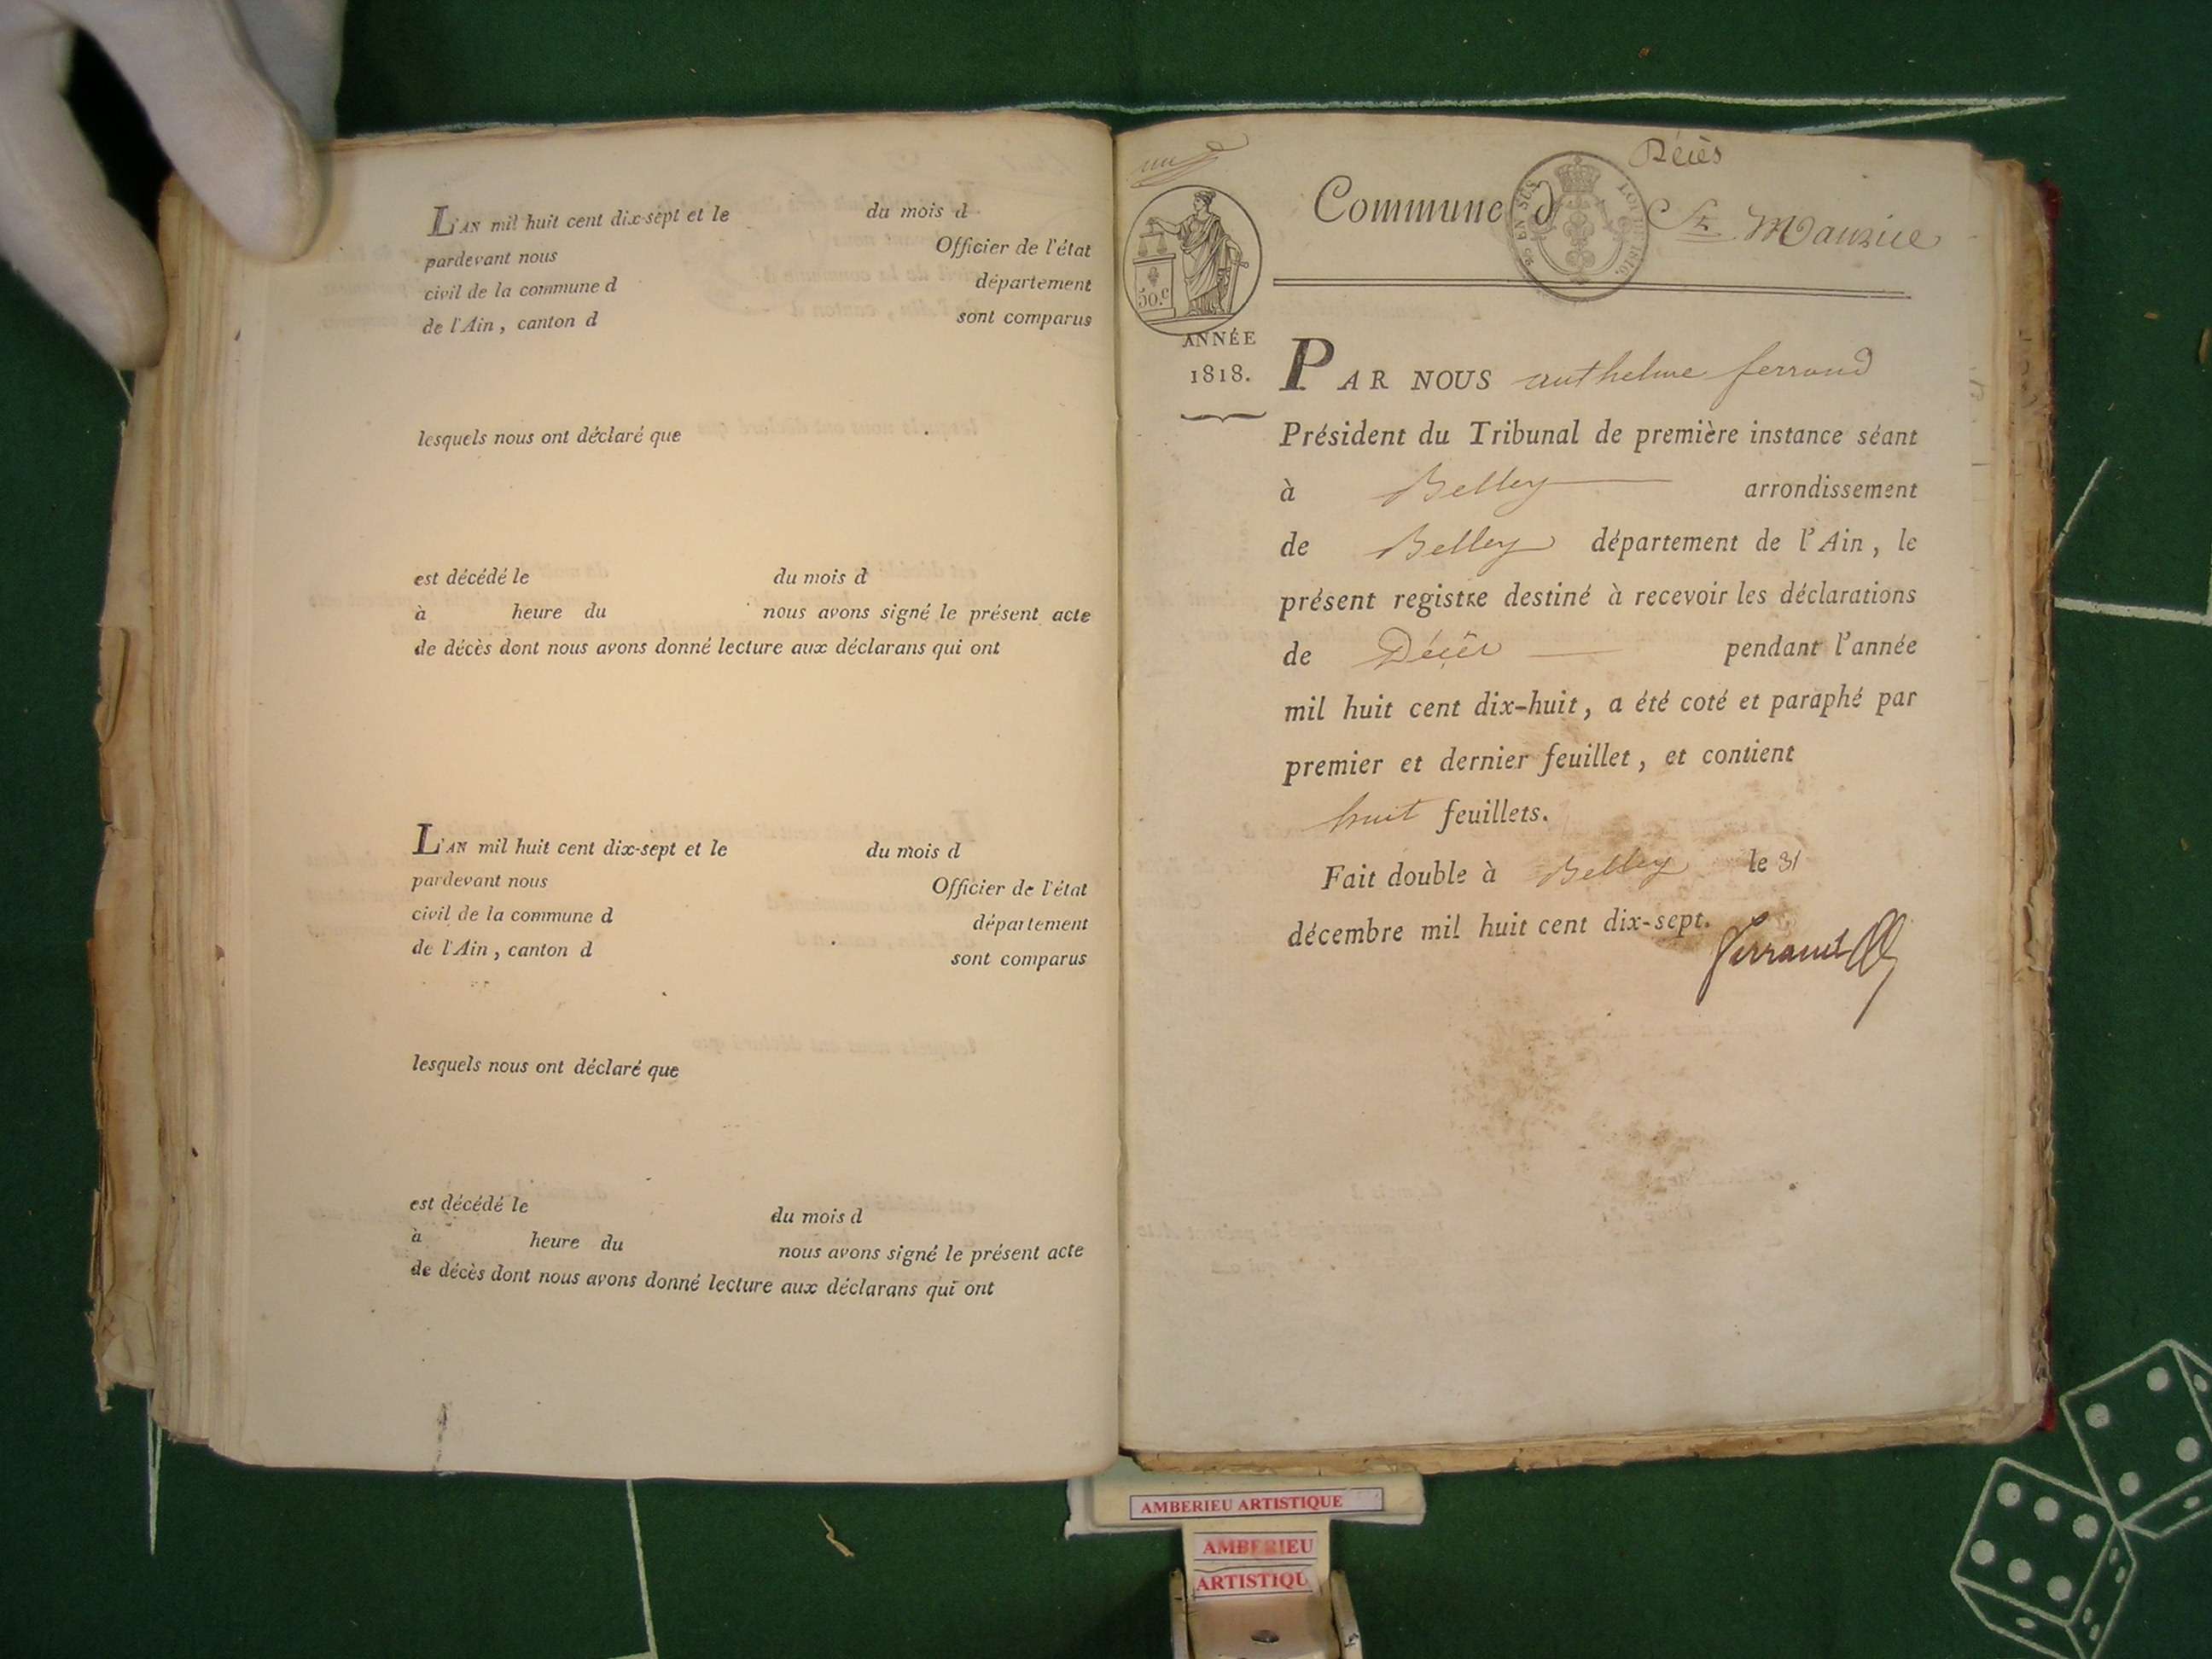 L'AN mil huit cent dix-sept et le du mois d
pardevant nous Officier de l'état
civil de la commune d département
de l'Ain, canton d sont comparus
lesquels nous ont déclaré que
est décédé le du mois d
à heure du nous avons signé le présent acte
de décès dont nous avons donné lecture aux déclarans qui ont
L'AN mil huit cent dix-sept et le du mois d
pardevant nous Officier de l'état
civil de la commune d département
de l'Ain, canton d sont comparus
lesquels nous ont déclaré que
est décédé le du mois d
à heure du nous avons signé le présent acte
de décès dont nous avons donné lecture aux déclarans qui ont
Décès
Commune d St Maurice
EN SUS LOI 1816.
50.c
ANNÉE
1818.
PAR NOUS anthelme ferrand
Président du Tribunal de première instance séant
à Belley arrondissement
de Belley département de l'Ain, le
présent registre destiné à recevoir les déclarations
de Décès pendant l'année
mil huit cent dix-huit, a été coté et paraphé par
premier et dernier feuillet, et contient
huit feuillets.
Fait double à Belley le 31
décembre mil huit cent dix-sept.
ferrand
AMBERIEU ARTISTIQUE
AMBERIEU
ARTISTIQU